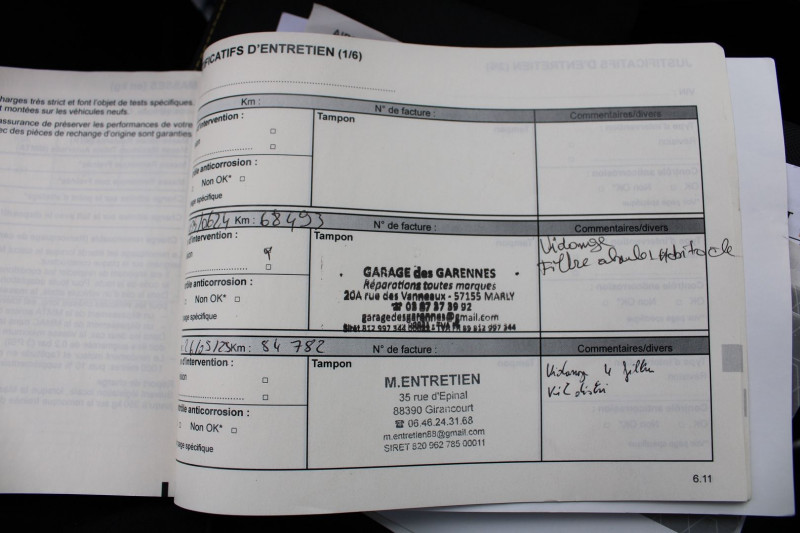 harges très strict et font l'objet de tests spécifiques.
t montées sur les véhicules neufs.
assurance de préserver les performances de votre
ec des pièces de rechange d'origine sont garanties
TIFICATIFS D'ENTRETIEN (1/6)
Km :
N° de facture :
Commentaires/divers
intervention :
Tampon
anticorrosion :
Non OK*
spécifique
/06/24 Km : 68493
N° de facture :
Commentaires/divers
d'intervention :
Tampon
Vidange
Filtre
GARAGE des GARENNES
Réparations toutes marques
20A rue des Vanneaux - 57155 MARLY
☎ 03 87 37 39 92
garagedesgarennes@gmail.com
ôle anticorrosion :
Non OK*
page spécifique
Km : 84 782
N° de facture :
Commentaires/divers
d'intervention :
Tampon
Vidange 4 filtres
Kit distri
M.ENTRETIEN
35 rue d'Epinal
88390 Girancourt
☎ 06.46.24.31.68
m.entretien88@gmail.com
SIRET 820 962 785 00011
ôle anticorrosion :
Non OK*
page spécifique
6.11